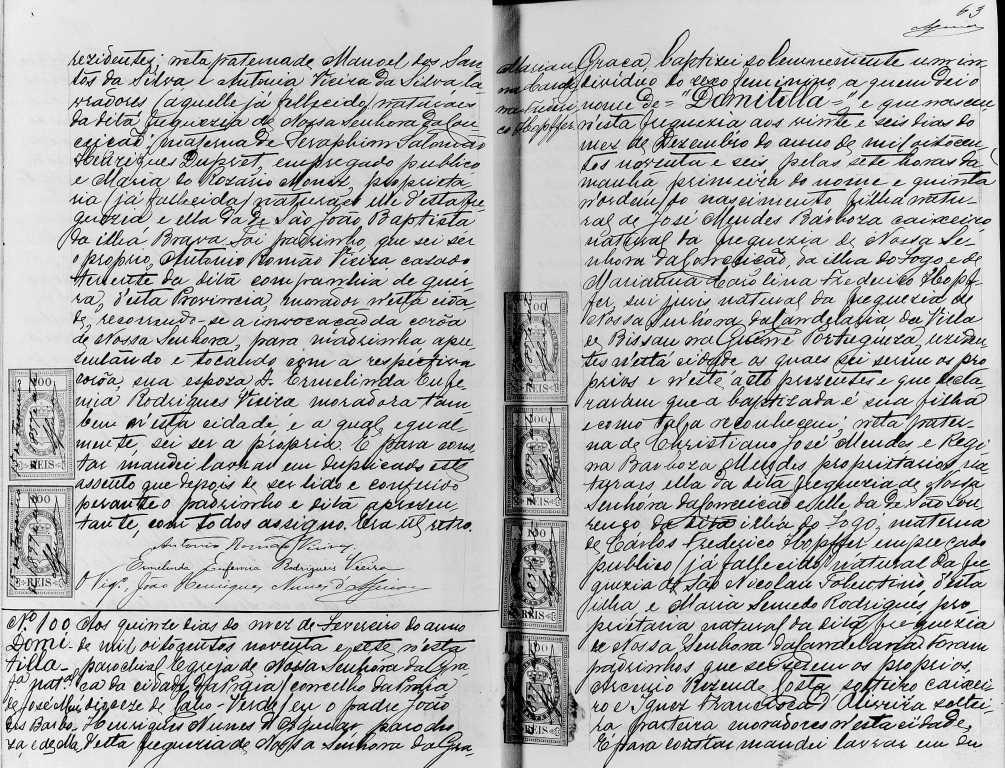 rezidentes; neta paterna de Manoel dos San-
tos da Silva e Antonia Vieira da Silva, la-
vradores (aquelle já fallecido) naturaes
da dita freguezia de Nossa Senhora da Con-
ceição; materna de Seraphim Salomão
Henriques Dupret, empregado publico
e Maria do Rozario Moniz, proprieta-
ria (já fallecida) naturaes elle d'esta fre-
guezia e ella da de São João Baptista
da ilha Brava. Foi padrinho, que sei ser
o proprio, Antonio Romão Vieira cazado
tenente da dita companhia de guer-
ra, d'esta Provincia, morador n'esta cida-
de, recorrendo-se a invocação da corôa
de Nossa Senhora, para madrinha apre-
sentando e tocando, com a respectiva
corôa, sua espoza D. Ermelinda Eufe-
mia Rodrigues Vieira moradora tam-
bem n'esta cidade, e a qual, egual-
mente, sei ser a propria. E para cons-
tar, mandei lavrar em duplicado este
assento que depois de ser lido e conferido
perante o padrinho e dita aprezen-
tante, com todos assigno. Era ut retro.
Antonio Romão Vieira
Ermelinda Eufemia Rodrigues Vieira
O Vigº. João Henriques Nunes d'Aguiar
100
REIS
100
REIS
Nº 100
Domi-
tilla-
natal
de José Mendes
Barbo-
za, e de
Aos quinze dias do mez de Fevereiro do anno
de mil oitocentos noventa e sete n'esta
parochial Egreja de Nossa Senhora da Gra-
ça da cidade da Praia, concelho da Praia
diozeze de Cabo-Verde, eu o padre João
Henriques Nunes d'Aguiar, parocho
d'esta freguezia de Nossa Senhora da Gra-
63
Aguiar
Marian-
na Caro-
lina Frederi-
co Hopffer
Graça, baptizei solemnemente um in-
dividuo do sexo feminino, a quem dei o
nome de = "Domitilla" =, e que nasceu
n'esta freguezia aos vinte e seis dias do
mez de Dezembro do anno de mil oitocen-
tos noventa e seis, pelas sete horas da
manhã primeira do nome e quinta
n'ordem do nascimento, filha natu-
ral de José Mendes Barboza caixeiro,
natural da freguezia de Nossa Se-
nhora da Conceição, da ilha do Fogo e de
Marianna Carolina Frederico Hopf-
fer, sui juris natural da freguezia de
Nossa Senhora da Candelaria da Villa
de Bissau na Guiné Portugueza, reziden-
tes n'esta cidade os quaes sei serem os pro-
prios e n'este acto prezentes e que decla-
raram que a baptizada é sua filha
e como tal a reconhecem; neta pater-
na de Christiano José Mendes e Regi-
na Barboza Mendes proprietarios na-
turaes ella da dita freguezia de Nossa
Senhora da Conceição e elle da de São Lou-
renço da dita ilha do Fogo, materna
de Carlos Frederico Hopffer empregado
publico já fallecido, natural da fre-
guezia de São Nicolau Tolentino, d'esta
ilha e Maria Semedo Rodrigues pro-
prietaria natural da dita freguezia
de Nossa Senhora da Candelaria. Foram
padrinhos que sei serem os proprios,
Arcenio Rezende Costa, solteiro caixei-
ro e Ignez Francisca d'Oliveira soltei-
ra, parteira moradores n'esta cidade.
E para constar mandei lavrar em du-
100
REIS
100
REIS
100
REIS
100
REIS